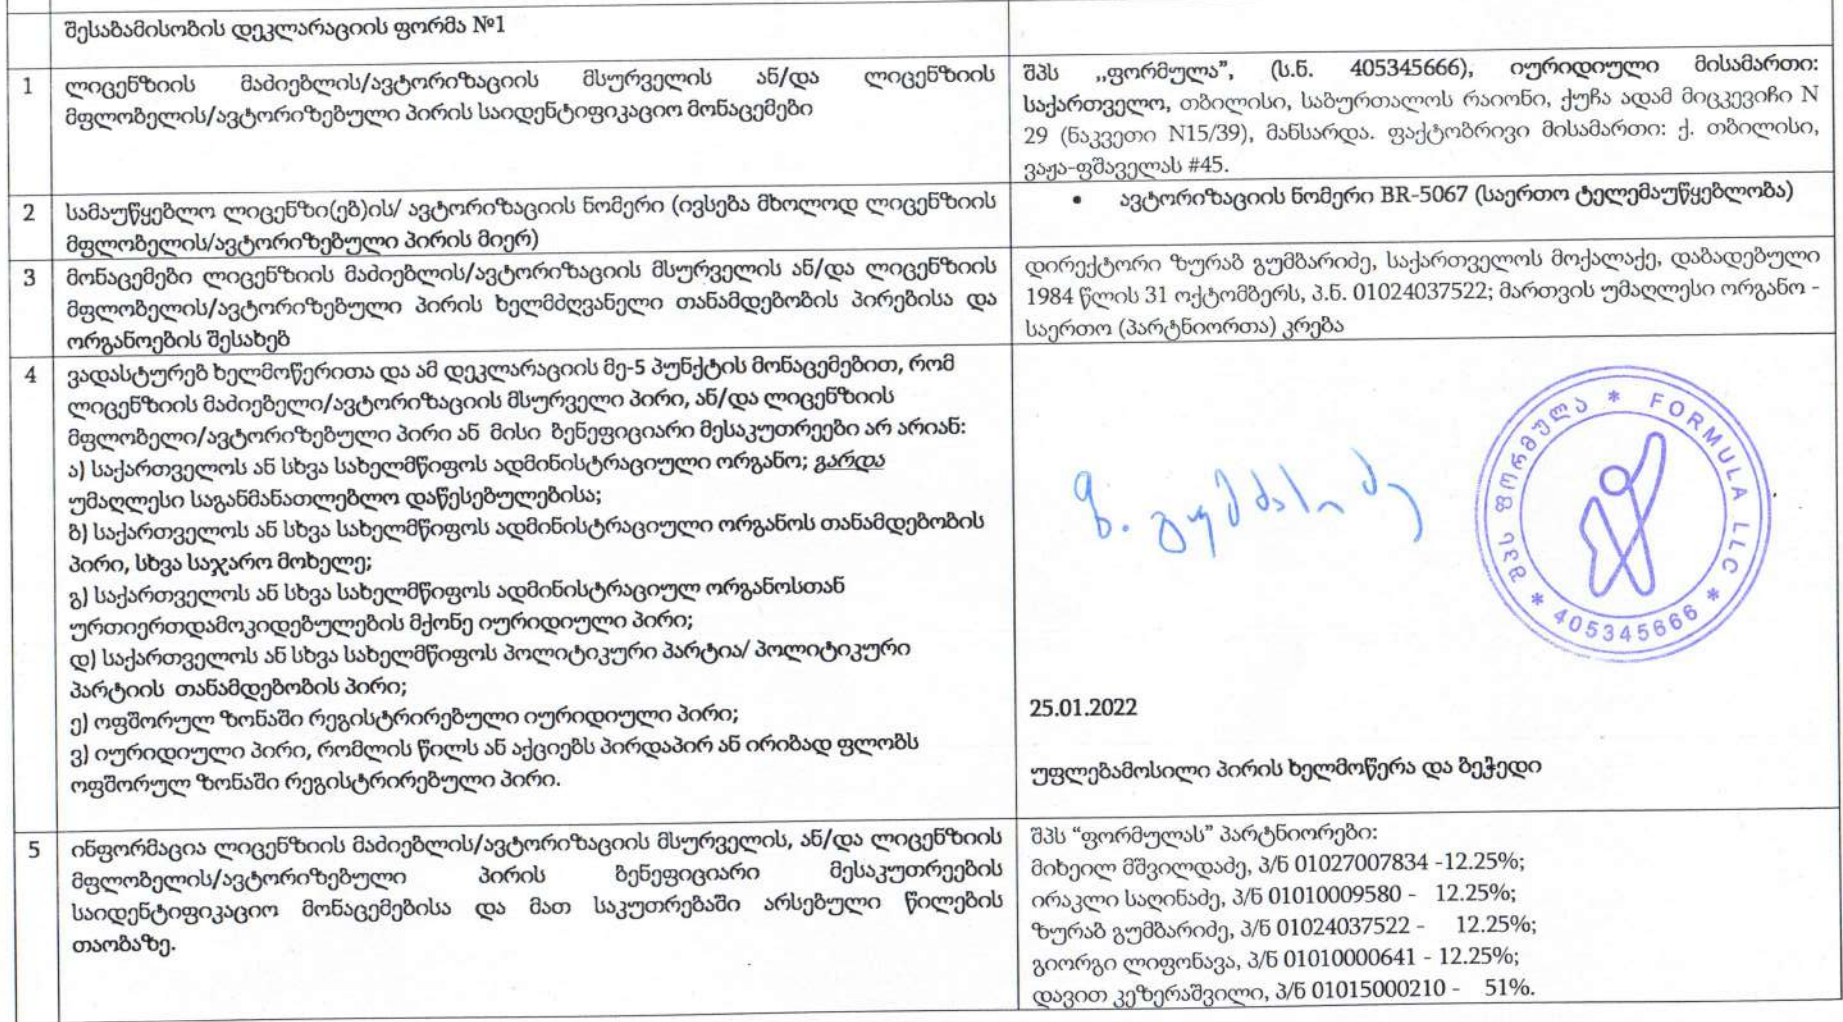 შესაბამისობის დეკლარაციის ფორმა №1
1 ლიცენზიის მაძიებლის/ავტორიზაციის მსურველის ან/და ლიცენზიის
მფლობელის/ავტორიზებული პირის საიდენტიფიკაციო მონაცემები
შპს „ფორმულა”, (ს.ნ. 405345666), იურიდიული მისამართი:
საქართველო, თბილისი, საბურთალოს რაიონი, ქუჩა ადამ მიცკევიჩი N
29 (ნაკვეთი N15/39), მანსარდა. ფაქტობრივი მისამართი: ქ. თბილისი,
ვაჟა-ფშაველას #45.
2 სამაუწყებლო ლიცენზი(ებ)ის/ ავტორიზაციის ნომერი (ივსება მხოლოდ ლიცენზიის
მფლობელის/ავტორიზებული პირის მიერ)
• ავტორიზაციის ნომერი BR-5067 (საერთო ტელემაუწყებლობა)
3 მონაცემები ლიცენზიის მაძიებლის/ავტორიზაციის მსურველის ან/და ლიცენზიის
მფლობელის/ავტორიზებული პირის ხელმძღვანელი თანამდებობის პირებისა და
ორგანოების შესახებ
დირექტორი ზურაბ გუმბარიძე, საქართველოს მოქალაქე, დაბადებული
1984 წლის 31 ოქტომბერს, პ.ნ. 01024037522; მართვის უმაღლესი ორგანო -
საერთო (პარტნიორთა) კრება
4 ვადასტურებ ხელმოწერითა და ამ დეკლარაციის მე-5 პუნქტის მონაცემებით, რომ
ლიცენზიის მაძიებელი/ავტორიზაციის მსურველი პირი, ან/და ლიცენზიის
მფლობელი/ავტორიზებული პირი ან მისი ბენეფიციარი მესაკუთრეები არ არიან:
ა) საქართველოს ან სხვა სახელმწიფოს ადმინისტრაციული ორგანო; გარდა
უმაღლესი საგანმანათლებლო დაწესებულებისა;
ბ) საქართველოს ან სხვა სახელმწიფოს ადმინისტრაციული ორგანოს თანამდებობის
პირი, სხვა საჯარო მოხელე;
გ) საქართველოს ან სხვა სახელმწიფოს ადმინისტრაციულ ორგანოსთან
ურთიერთდამოკიდებულების მქონე იურიდიული პირი;
დ) საქართველოს ან სხვა სახელმწიფოს პოლიტიკური პარტია/ პოლიტიკური
პარტიის თანამდებობის პირი;
ე) ოფშორულ ზონაში რეგისტრირებული იურიდიული პირი;
ვ) იურიდიული პირი, რომლის წილს ან აქციებს პირდაპირ ან ირიბად ფლობს
ოფშორულ ზონაში რეგისტრირებული პირი.
ზ. გუმბარიძე
შპს ფორმულა * FORMULA LLC * 405345666 *
25.01.2022
უფლებამოსილი პირის ხელმოწერა და ბეჭედი
5 ინფორმაცია ლიცენზიის მაძიებლის/ავტორიზაციის მსურველის, ან/და ლიცენზიის
მფლობელის/ავტორიზებული პირის ბენეფიციარი მესაკუთრეების
საიდენტიფიკაციო მონაცემებისა და მათ საკუთრებაში არსებული წილების
თაობაზე.
შპს “ფორმულას” პარტნიორები:
მიხეილ მშვილდაძე, პ/ნ 01027007834 -12.25%;
ირაკლი საღინაძე, პ/ნ 01010009580 - 12.25%;
ზურაბ გუმბარიძე, პ/ნ 01024037522 - 12.25%;
გიორგი ლიფონავა, პ/ნ 01010000641 - 12.25%;
დავით კეზერაშვილი, პ/ნ 01015000210 - 51%.